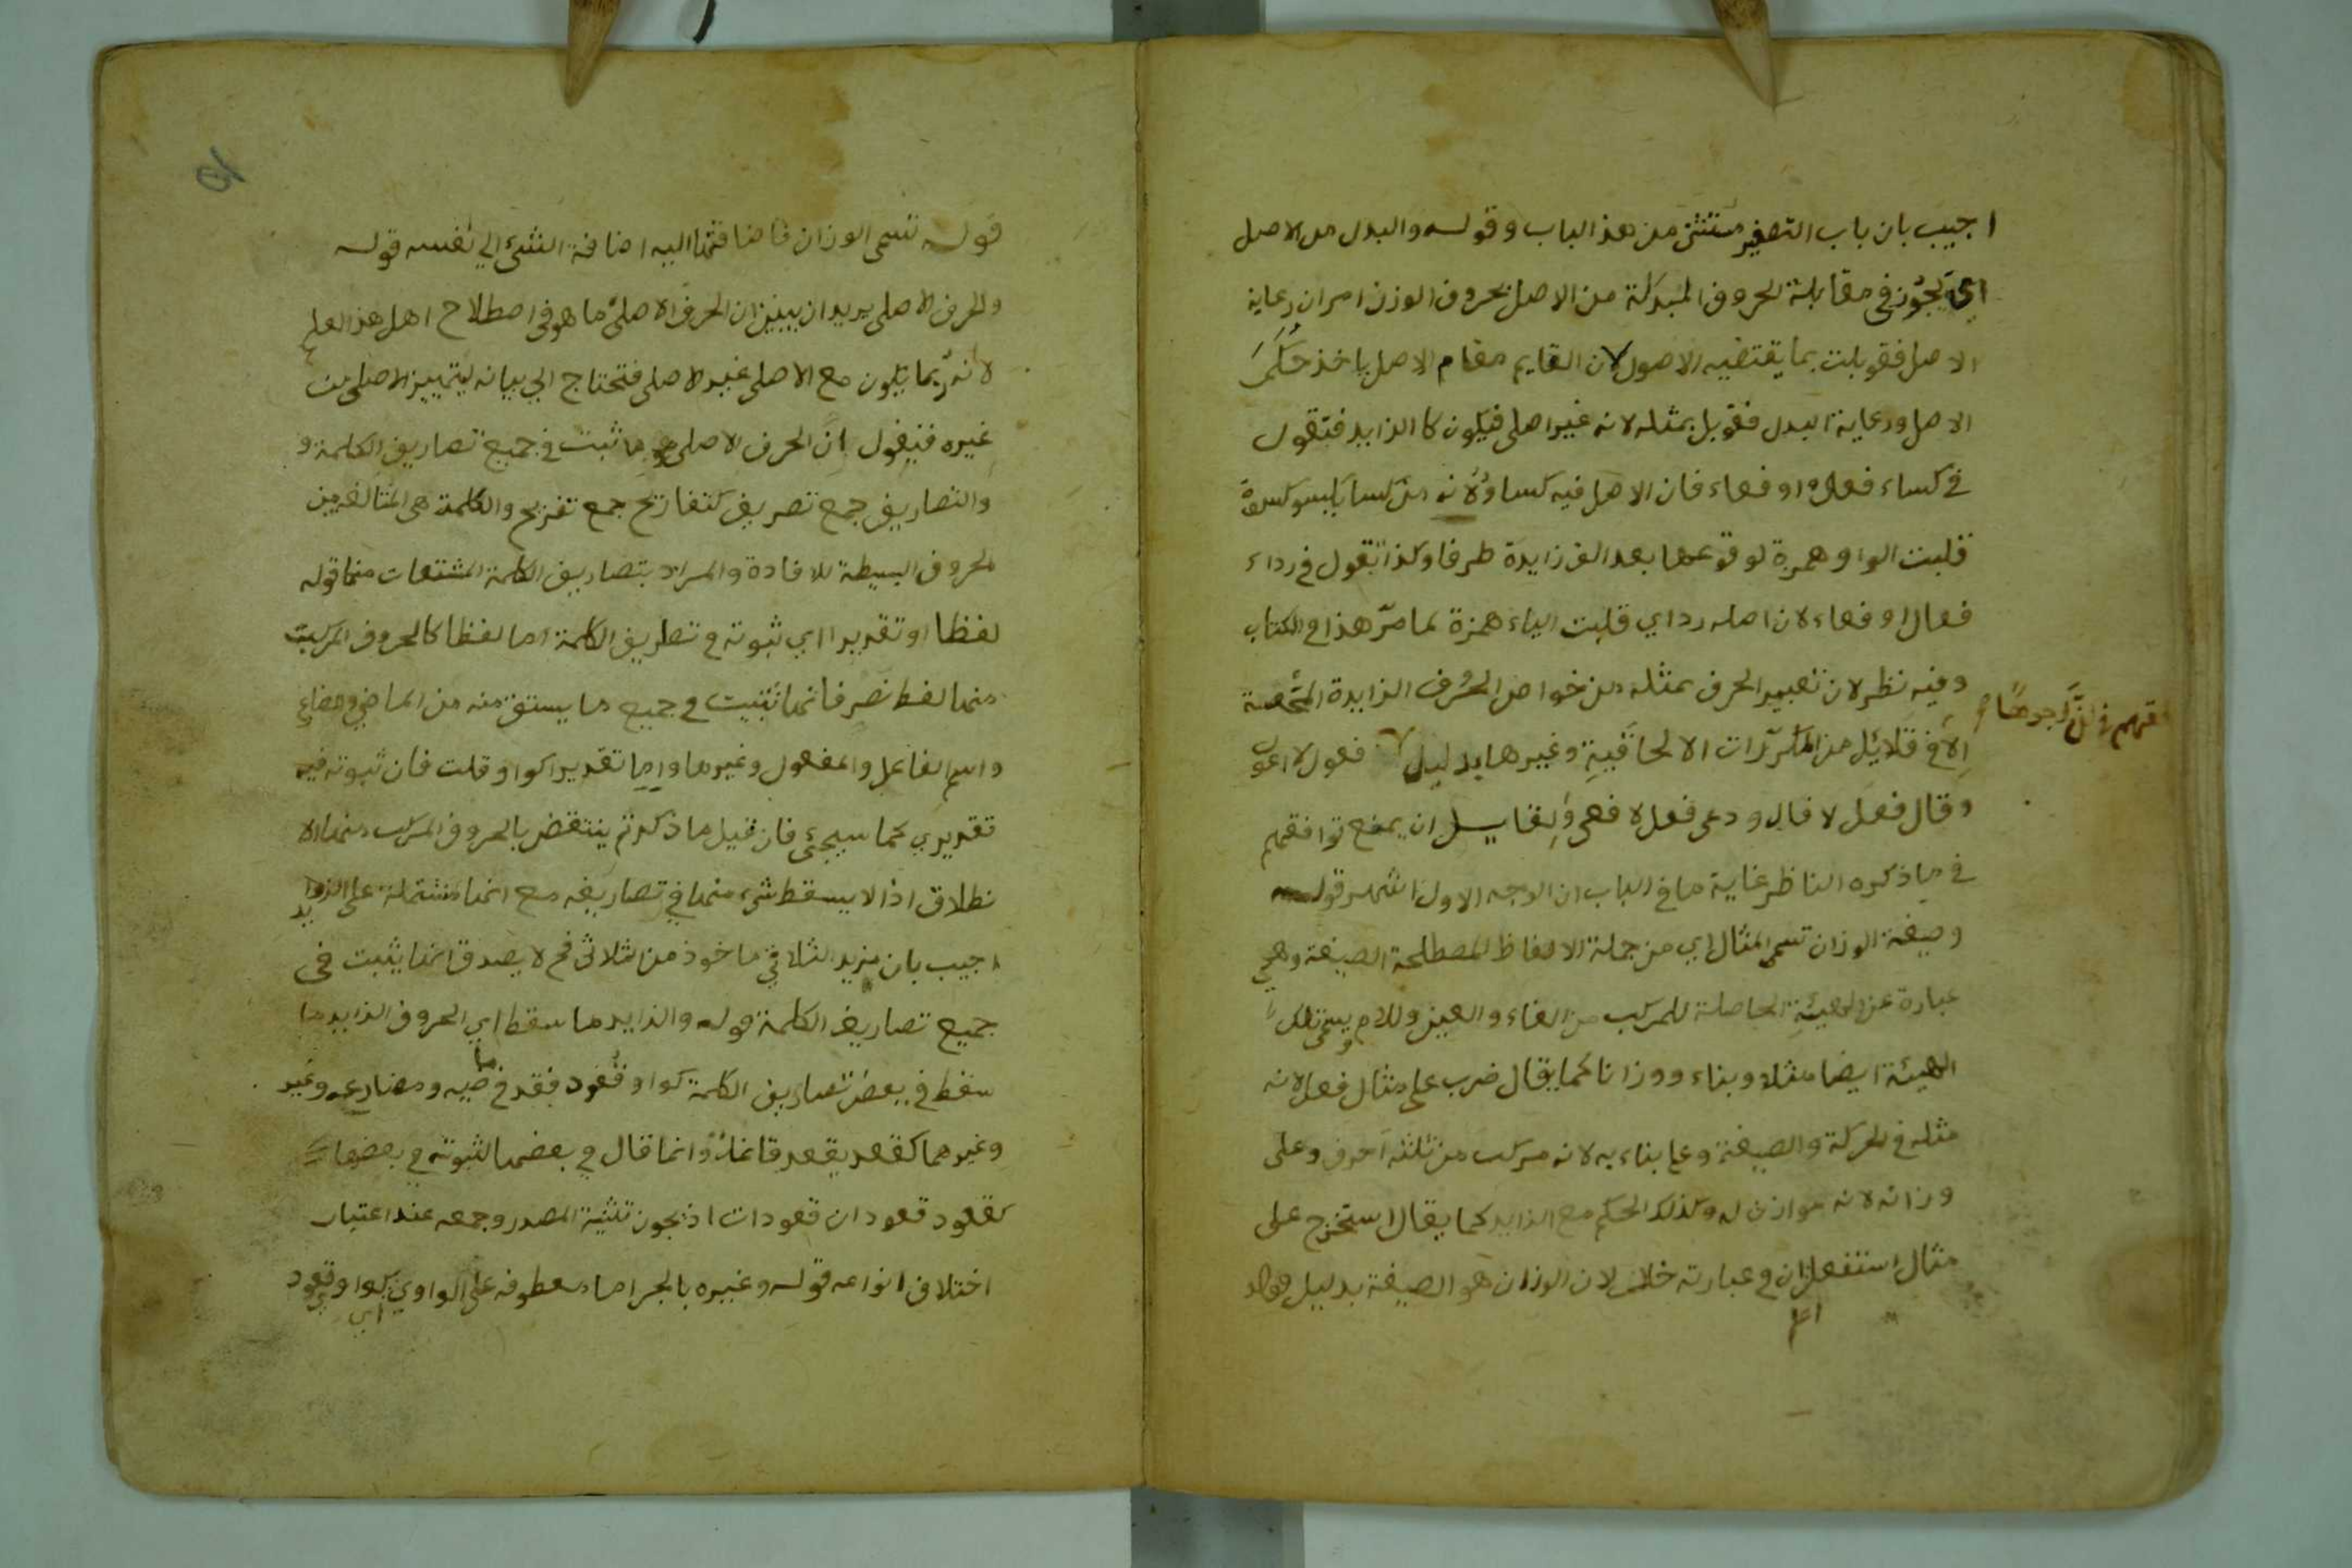 اجيب بان باب التصغير مستثنى من هذا الباب وقوله والبدل من الاصل
اي يجوز في مقابلة الحروف المبدلة من الاصل بحروف الوزن امران رعاية
الاصل فقوبلت بما يقتضيه الاصول لان القايم مقام الاصل ياخذ حكم
الاصل ورعاية البدل فقوبل بمثله لانه غير اصلي فيكون كالزايد فتقول
في كساء فعال او فعاء فان الاصل فيه كساو لانه من كسا يكسو كسوة
قلبت الواو همزة لوقوعها بعد الف زايدة طرفا وكذا تقول في رداء
فعال او فعاء لان اصله رداي قلبت الياء همزة لما مر هذا في الكتاب
وفيه نظر لان تعبير الحرف بمثله من خواص الحرف الزايدة
الا في قلائل من المكررات الالحاقية وغيرها بدليل فعول لا
وقال فعل لا فال ودعى فعل لا فعى ولقايل ان يمنع توافقهم
في ما ذكره الناظر غاية ما في الباب ان الوجه الاول اشهر قوله
وصيغة الوزان تسمى المثال اي من جملة الالفاظ المصطلحة الصيغة وهي
عبارة عن الهيئة الحاصلة للمركب من الفاء والعين واللام ويسمى تلك
الهيئة ايضا مثلا وبناء ووزانا كما يقال ضرب على مثال فعل لانه
مثله في الحركة والصيغة وعلى بناءه لانه مركب من ثلثة احرف وعلى
وزانه لانه موازن له وكذلك الحكم مع الزايد كما يقال استخرج على
مثال استفعل ان في عبارته خلل لان الوزان هو الصيغة بدليل قوله
قوله تسمى الوزان فاضافتها اليه اضافة الشئ الي نفسه قوله
والحرف الاصلي يريد ان يبين ان الحرف الاصلي ما هو في اصطلاح اهل هذا العلم
لانه ربما يكون مع الاصلي غير الاصلي فتحتاج الي بيانه ليتميز الاصلي من
غيره فنقول ان الحرف الاصلي هو ما ثبت في جميع تصاريف الكلمة و
والتصاريف جمع تصريف كتفاريح جمع تفريح والكلمة هي المتالفة من
الحروف البسيطة للافادة والمراد بتصاريف الكلمة المشتقات منها قوله
لفظا او تقديرا اي ثبوته في تصاريف الكلمة اما لفظا كالحروف المركبت
منها لفظ نصر فانها تثبت في جميع ما يستق منه من الماضي ومضارع
واسم الفاعل والمفعول وغيرها واما تقديرا كواو قلت فان ثبوته فيه
تقديري كما سيجئ فان قيل ما ذكرتم ينتقض بالحروف المركب منها الا
نطلاق اذ لا يسقط شئ منها في تصاريفه مع انها مشتملة على الزوايد
اجيب بان مزيد الثلاثي ماخوذ من الثلاثي فح لا يصدق انها يثبت في
جميع تصاريف الكلمة قوله والزايد ما سقط اي الحروف الزايد ما
سقط في بعض تصاريف الكلمة كواو قعود فقد في ماضيه ومضارعه وغير
وغيرهما كقعد يقعد وانما قال في بعضها لثبوته في بعضها
كقعود قعودان قعودات اذ يجوز تثنية المصدر وجمعه عند اعتبار
اختلاف انواعه قوله وغيره بالجر اما معطوفه على الواو اي كواو قعود